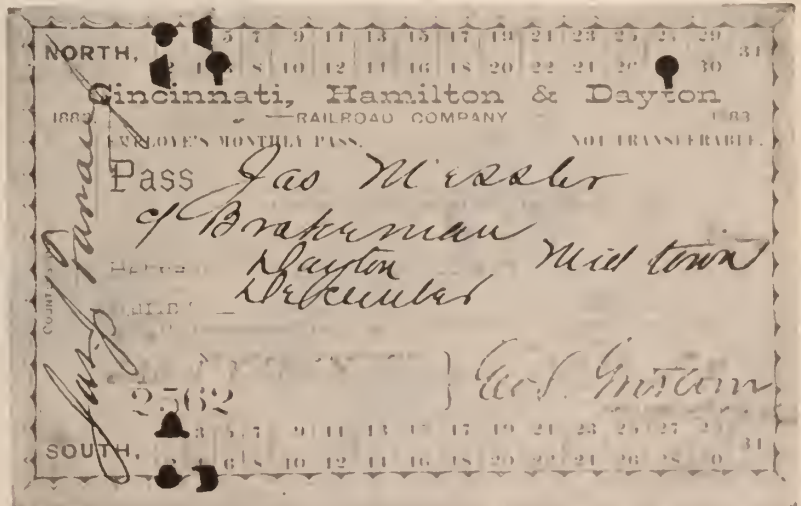 NORTH, 5 7 9 11 13 15 17 19 21 23 25 27 29 31
8 10 12 14 16 18 20 22 24 26 30
Cincinnati, Hamilton & Dayton
188 RAILROAD COMPANY 1883
EMPLOYE'S MONTHLY PASS. NOT TRANSFERABLE.
Pass Jas Messler
of Brakeman
Dayton Midtown
December
2562
SOUTH, 3 5 7 9 11 13 15 17 19 21 23 25 27 29 31
6 8 10 12 14 16 18 20 22 24 26 28 30